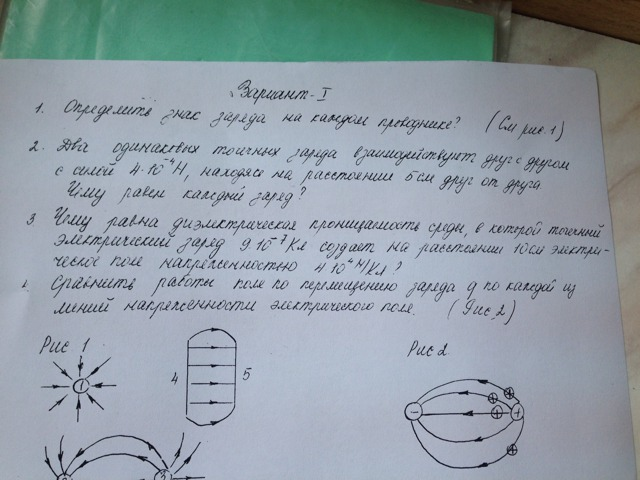 Вариант-I
1. Определить знак заряда на каждом проводнике? (См рис.1)
2. Два одинаковых точечных заряда взаимодействуют друг с другом
с силой 4·10⁻⁴Н, находясь на расстоянии 5см друг от друга.
Чему равен каждый заряд?
3. Чему равна диэлектрическая проницаемость среды, в которой точечный
электрический заряд 9·10⁻⁷Кл создает на расстоянии 10см электри-
ческое поле напряженностью 4·10⁴Н/Кл?
Сравнить работы поле по перемещению заряда q по каждой из
линий напряженности электрического поля. (Рис.2)
Рис 1
Рис 2.
1
4 5
- + + + + +
2 3